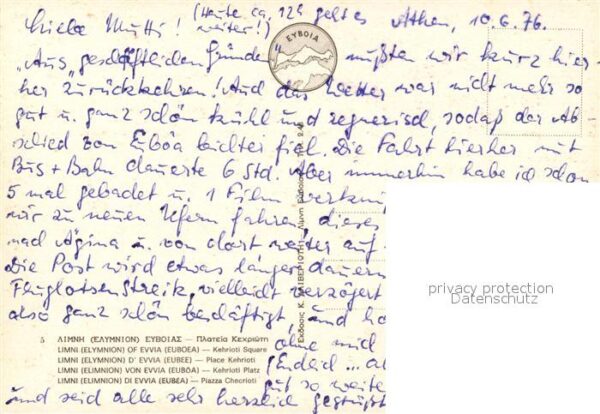 (Heute ca. 12h geht es
Liebe Mutti! weiter!) Athen, 10.6.76.
ΕΥΒΟΙΑ
EYBOIA
„Aus geschäftlichen Gründen" mußten wir kurz hier-
her zurückkehren! Auch das Wetter war nicht mehr so
gut u. ganz schön kühl und regnerisch, sodaß der Ab-
schied von Euböa leichter fiel. Die Fahrt hierher mit
Bus + Bahn dauerte 6 Std. Aber immerhin habe ich schon
5 mal gebadet u. 1 Film
wir zu neuen Ufern fahren, dieses
nach Ägina u. von dort weiter auf
Die Post wird etwas länger dauern
Fluglotsenstreik, vielleidt verzögert
also ganz schön beschäftigt, und
ohne mich
gut so weite
und seid alle sehr herzlich gegrüßt
5 ΛΙΜΝΗ (ΕΛΥΜΝΙΟΝ) ΕΥΒΟΙΑΣ — Πλατεία Κεχριώτη
LIMNI (ELYMNION) OF EVVIA (EUBOEA) — Kehrioti Square
LIMNI (ELYMNION) D' EVVIA (EUBEE) — Place Kehrioti
LIMNI (ELIMNION) VON EVVIA (EUBÖA) — Kehrioti Platz
LIMNI (ELIMNION) DI EVVIA (EUBEA) — Piazza Checrioti
privacy protection
Datenschutz